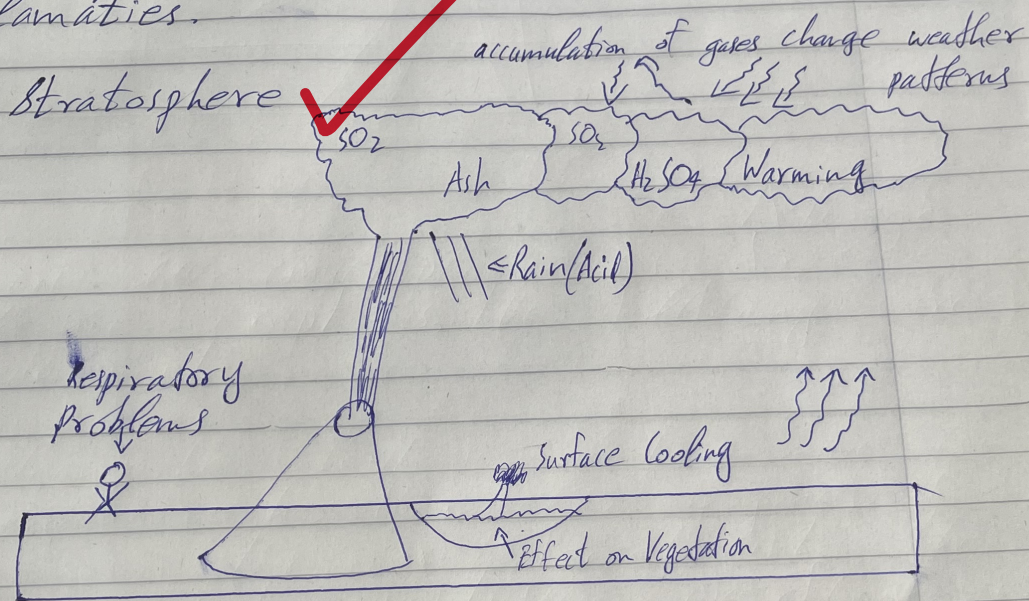 lamaties.
accumulation of gases change weather
patterns
Stratosphere
SO2
SO2
Ash
H2SO4
Warming
Rain (Acid)
Respiratory
Problems
Surface Cooling
Effect on Vegetation